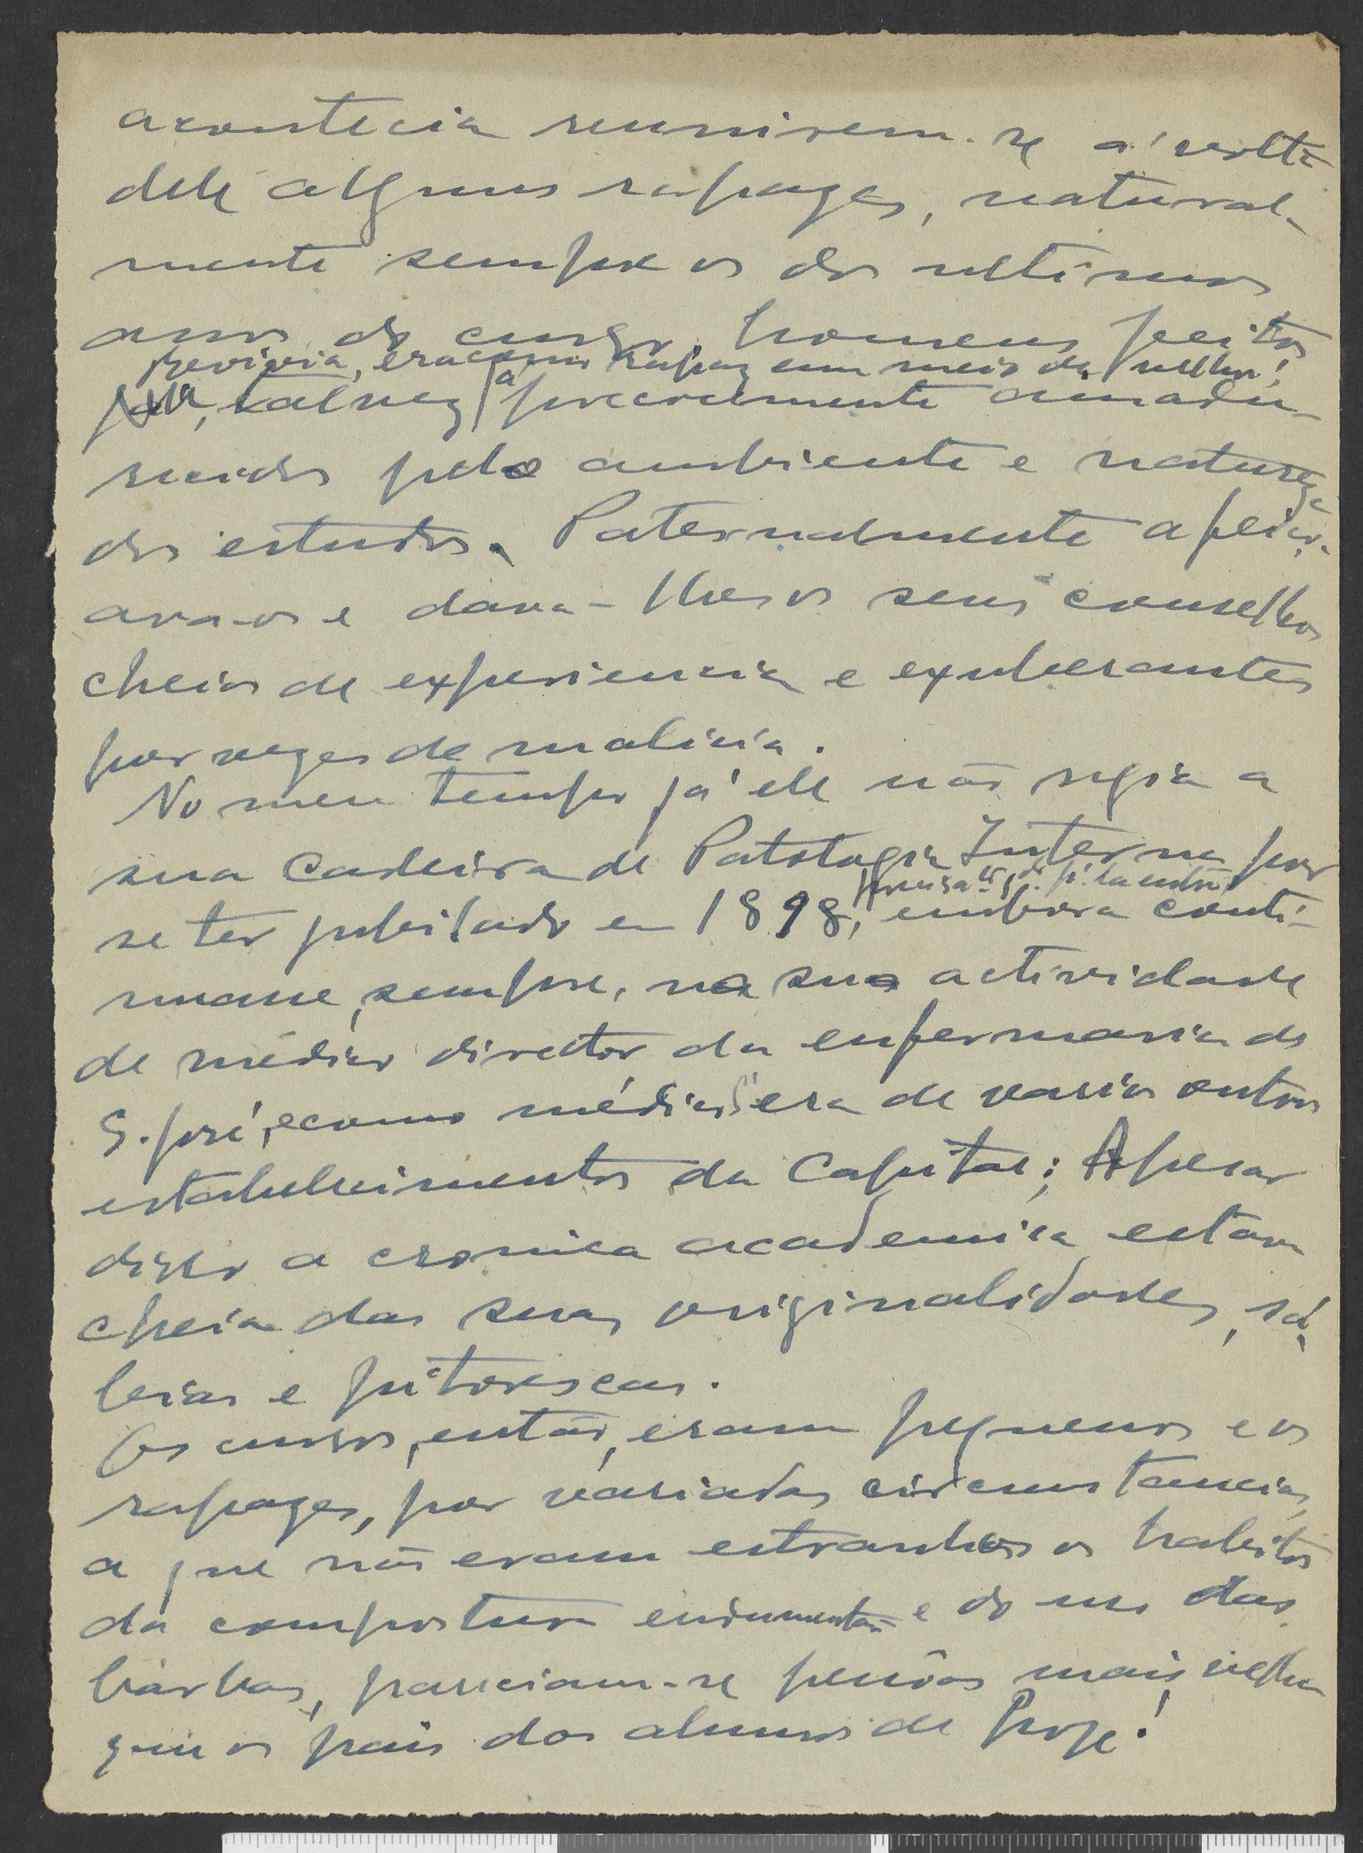 acontecia reunirem-se á volta
dele alguns rapazes, natural-
mente sempre os dos ultimos
anos do curso, homens feitos
Revivia, era como rapaz em meio da velhos!
já, talvez precocemente amadu-
recidos pelo ambiente e natureza
dos estudos. Paternalmente afeiço-
ava-os e dava-lhes os seus conselhos
cheios de experiencia e exuberantes
por vezes de malicia.
No meu tempo já ele não regia a
sua Cadeira de Patologia Interna por
se ter jubilado en 1898, embora conti-
nuasse, sempre, na sua actividade
de médico director da enfermaria de
S. José, e como médico era de varios outros
estabelecimentos da Capital; Apesar
disso a cronica academica estava
cheia das suas originalidades, sá-
bias e pitorescas.
Os cursos, então, eram pequenos e os
rapazes, por variadas circumstancias,
a que não eram estranhos os habitos
da compostura e do uso das
bárbas, pareciam-se senões mais velhos
que os pais dos alunos de hoje!